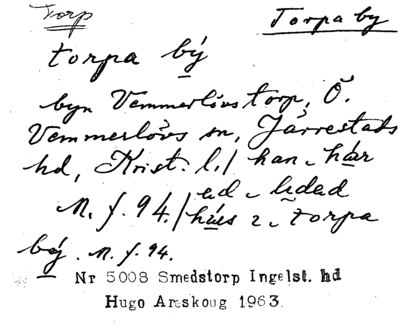 Torp
Torpa by
torpa bý
byn Vemmerlövstorp, Ö.
Vemmerlövs sn, Järrestads
hd, Krist. l./ han
ud
M. f. 94./ torpa
bý. M. f. 94.
Nr 5008 Smedstorp Ingelst. hd
Hugo Areskoug 1963.